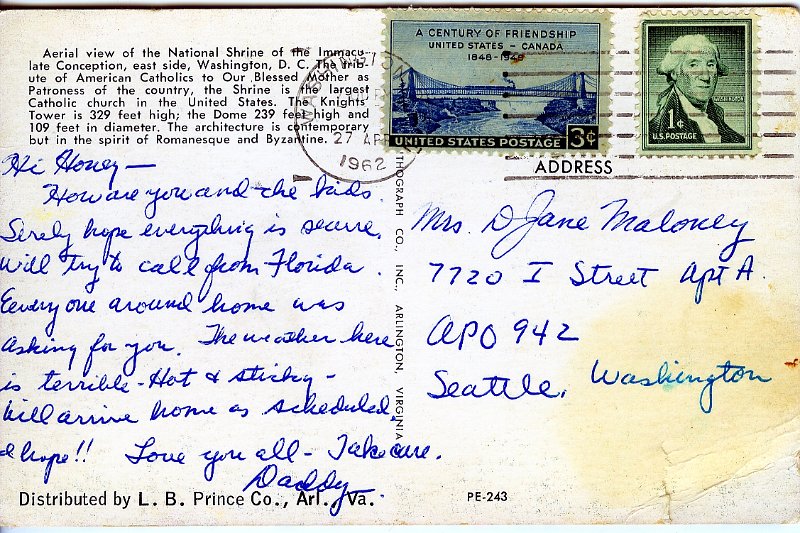 Aerial view of the National Shrine of the Immacu-
late Conception, east side, Washington, D. C. The trib-
ute of American Catholics to Our Blessed Mother as
Patroness of the country, the Shrine is the largest
Catholic church in the United States. The Knights'
Tower is 329 feet high; the Dome 239 feet high and
109 feet in diameter. The architecture is contemporary
but in the spirit of Romanesque and Byzantine.
WASHINGTON
27 APR
1962
A CENTURY OF FRIENDSHIP
UNITED STATES – CANADA
1848-1948
UNITED STATES POSTAGE 3¢
1¢
U.S. POSTAGE
WASHINGTON
ADDRESS
Hi Honey—
How are you and the kids.
Sirely hope everything is secure.
Will try to call from Florida.
Everyone around home was
asking for you. The weather here
is terrible - Hot & sticky -
Will arrive home as scheduled,
I hope!! Love you all - Take care.
Daddy
Mrs. D Jane Maloney
7720 I Street Apt A.
APO 942
Seattle, Washington
THOGRAPH CO., INC., ARLINGTON, VIRGINIA
Distributed by L. B. Prince Co., Arl., Va.
PE-243